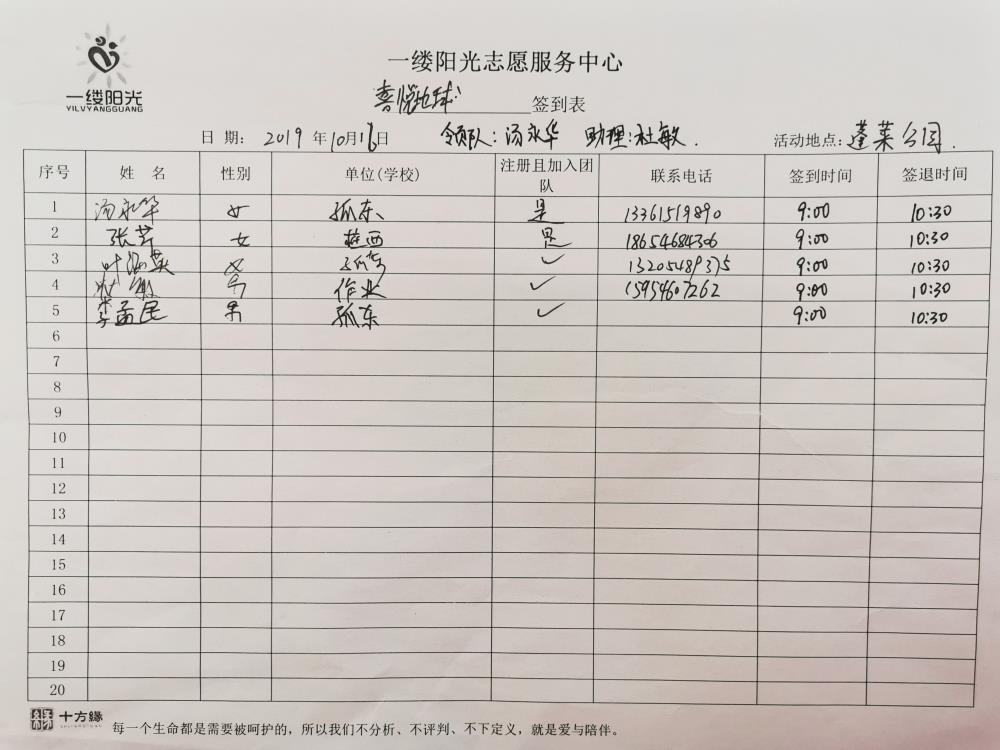 一缕阳光
YILVYANGGUANG
一缕阳光志愿服务中心
喜悦地球 签到表
日 期： 2019 年10月16日 领队：汤永华 助理：杜敏. 活动地点：蓬莱公园.
序号 姓 名 性别 单位(学校) 注册且加入团队 联系电话 签到时间 签退时间
1 汤永华 女 孤东 是 13361519890 9:00 10:30
2 张芳 女 桩西 是 18654684306 9:00 10:30
3 叶海英 女 孤东 ✓ 13205489375 9:00 10:30
4 杜敏 男 作业 ✓ 15954607262 9:00 10:30
5 李孟民 男 孤东 ✓ 9:00 10:30
6
7
8
9
10
11
12
13
14
15
16
17
18
19
20
十方缘 每一个生命都是需要被呵护的，所以我们不分析、不评判、不下定义，就是爱与陪伴。